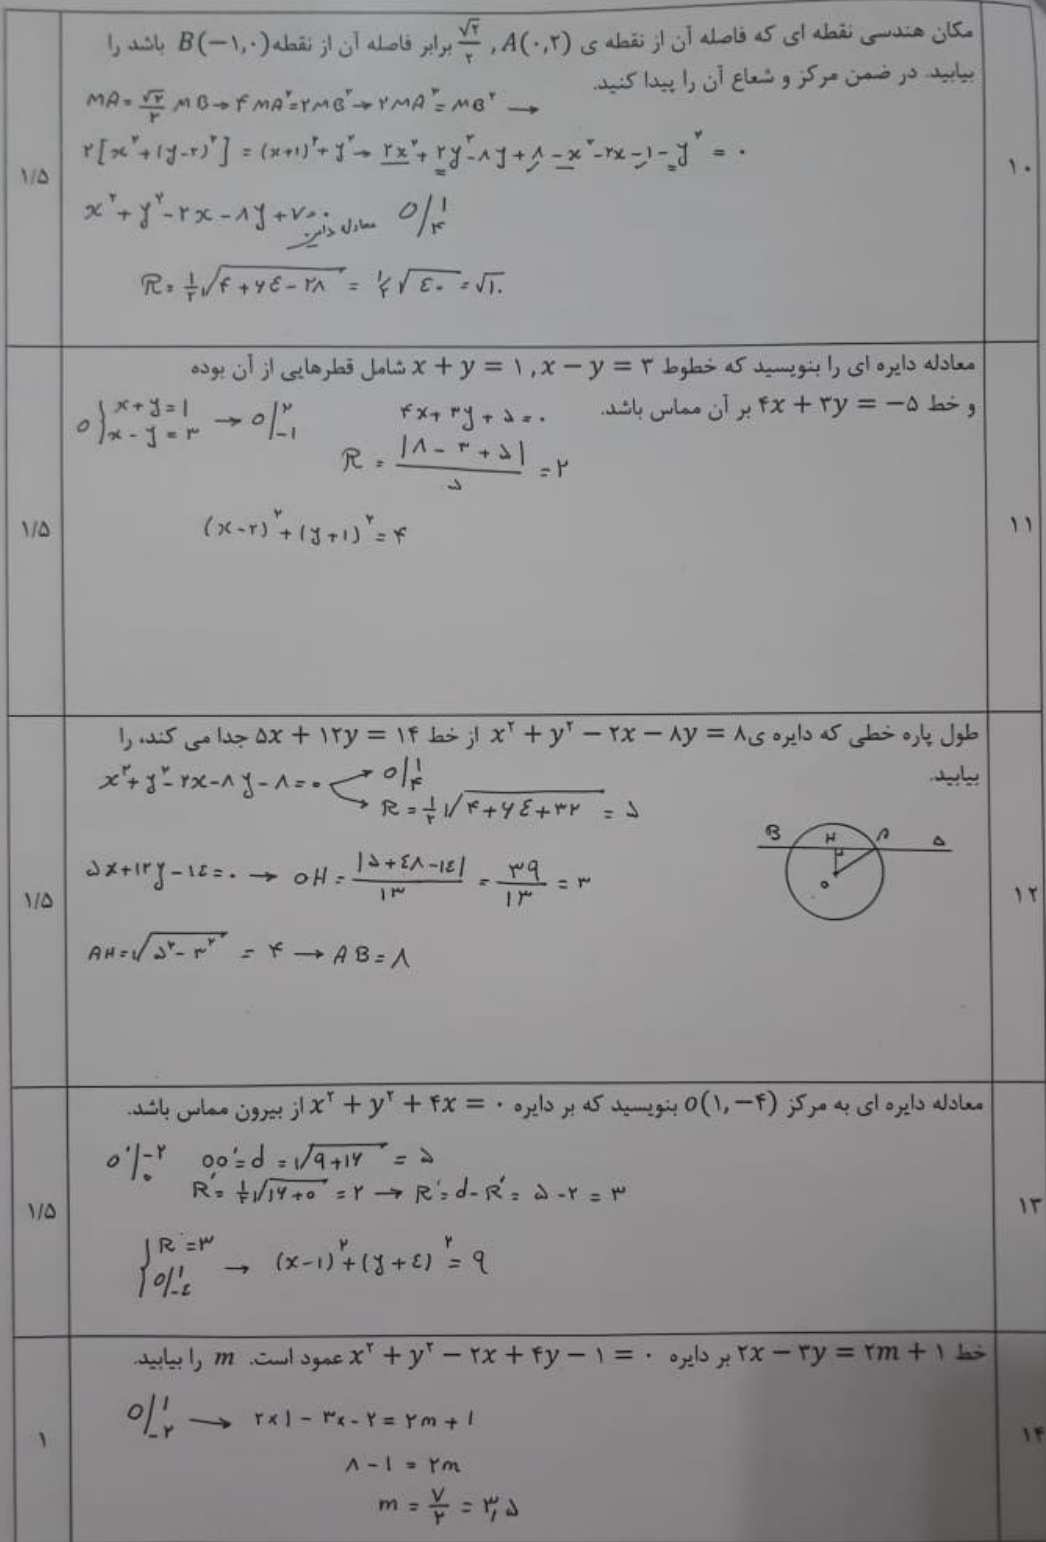 ۱۰
مکان هندسی نقطه ای که فاصله آن از نقطه ی A(۰,۲) , √۲/۲ برابر فاصله آن از نقطه B(−۱,۰) باشد را
بیابید. در ضمن مرکز و شعاع آن را پیدا کنید.
MA = √۲/۲ MB → ۴MA² = ۲MB² → ۲MA² = MB² →
۲[x² + (y-۲)²] = (x+۱)² + y² → ۲x² + ۲y² - ۸y + ۸ - x² - ۲x - ۱ - y² = ۰
x² + y² - ۲x - ۸y + ۷ = ۰ معادله دایره O|۱ ۴
R = ۱/۲ √۴+۶۴-۲۸ = ۱/۲ √۴۰ = √۱۰
۱/۵
۱۱
معادله دایره ای را بنویسید که خطوط x + y = ۱ , x − y = ۳ شامل قطرهایی از آن بوده
و خط ۴x + ۳y = −۵ بر آن مماس باشد.
O { x+y=1 x-y=۳ → O|۲ -1
۴x+۳y+۵=۰
R = |۸-۳+۵| / ۵ = ۲
(x-۲)² + (y+۱)² = ۴
۱/۵
۱۲
طول پاره خطی که دایره ی x² + y² − ۲x − ۸y = ۸ از خط ۵x + ۱۲y = ۱۴ جدا می کند، را
بیابید.
x² + y² - ۲x - ۸y - ۸ = ۰ → O|۱ ۴
→ R = ۱/۲ √۴+۶۴+۳۲ = ۵
B H A Δ
O
۵x+۱۲y-۱۴=۰ → OH = |۵+۴۸-۱۴| / ۱۳ = ۳۹/۱۳ = ۳
AH = √۵²-۳² = ۴ → AB = ۸
۱/۵
۱۳
معادله دایره ای به مرکز o(۱,−۴) بنویسید که بر دایره x² + y² + ۴x = ۰ از بیرون مماس باشد.
O'|-۲ ۰ OO' = d = √۹+۱۶ = ۵
R' = ۱/۲ √۱۶+۰ = ۲ → R = d-R' = ۵-۲ = ۳
{ R = ۳ O|۱ -۴ → (x-۱)² + (y+۴)² = ۹
۱/۵
۱۴
خط ۲x − ۳y = ۲m + ۱ بر دایره x² + y² − ۲x + ۴y − ۱ = ۰ عمود است. m را بیابید.
O|۱ -۲ → ۲×۱ - ۳×-۲ = ۲m + ۱
۸-۱ = ۲m
m = ۷/۲ = ۳,۵
۱